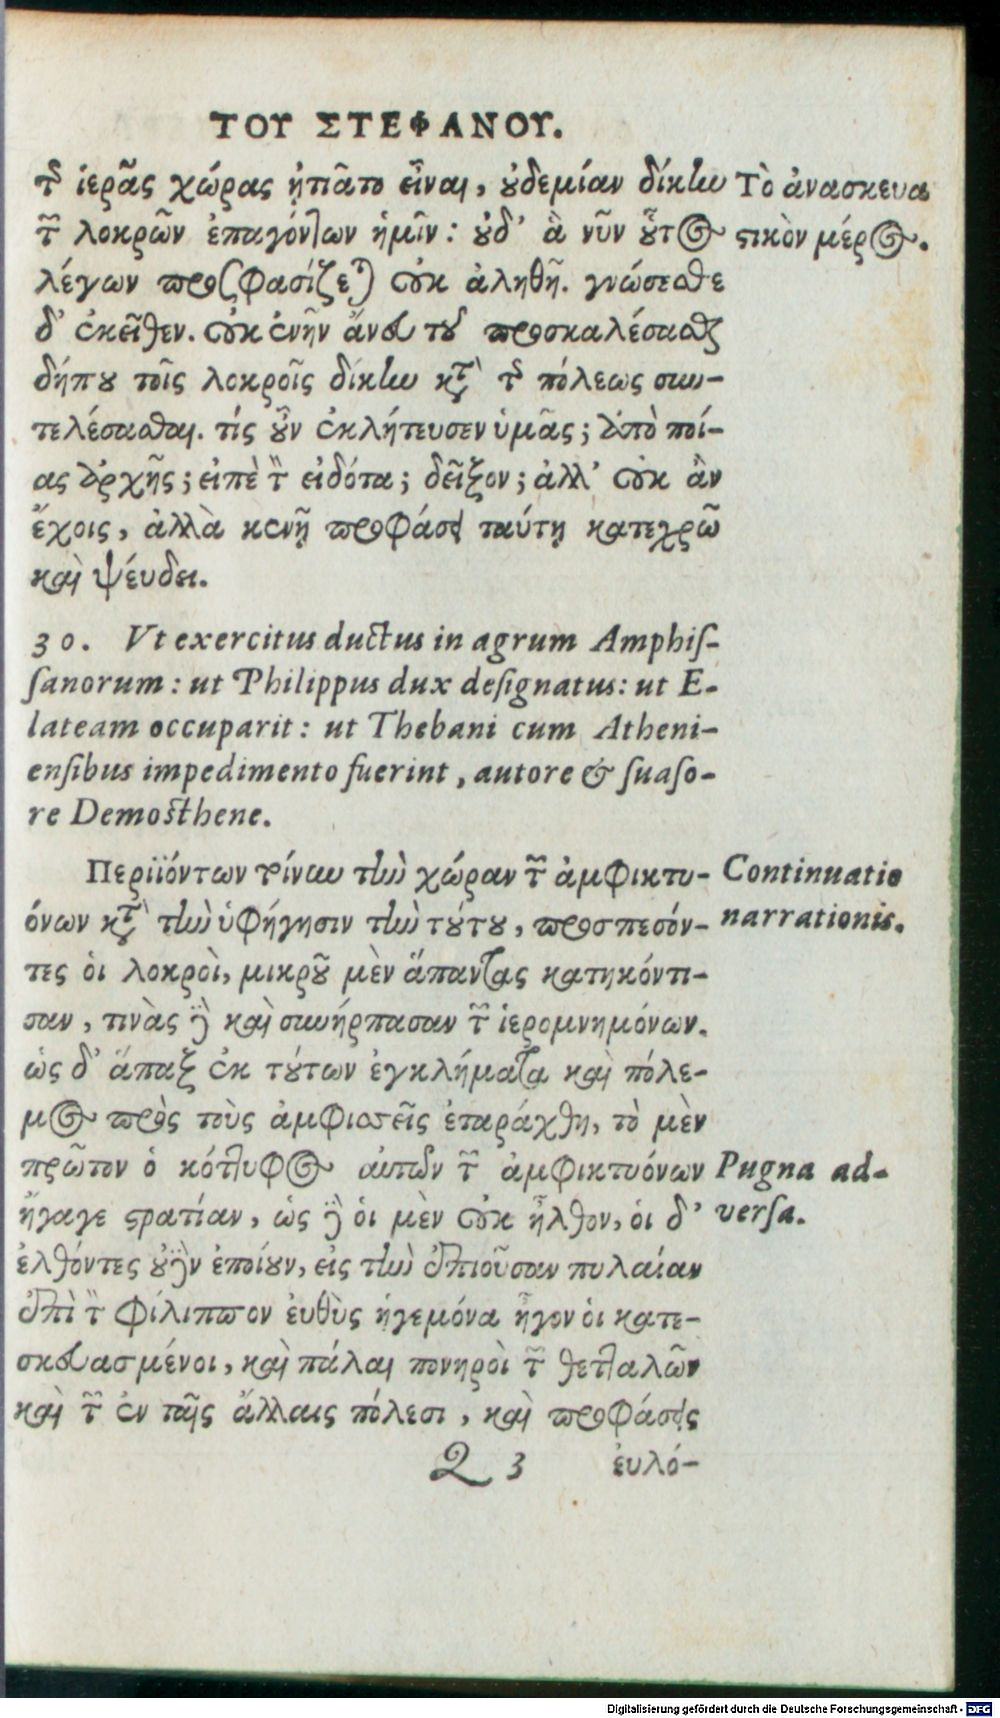 ΤΟΥ ΣΤΕΦΑΝΟΥ.
τῆς ἱερᾶς χώρας ᾐτιᾶτο εἶναι, οὐδεμίαν δίκην
τῶν λοκρῶν ἐπαγόντων ἡμῖν: οὐδ’ ἃ νῦν οὗτος
λέγων προφασίζεται) οὐκ ἀληθῆ. γνώσεσθε
δ’ ἐκεῖθεν. οὐκ ἐνῆν ἄνευ τοῦ προσκαλέσασθαι
δήπου τοῖς λοκροῖς δίκην κατὰ τῆς πόλεως συν-
τελέσασθαι. τίς οὖν ἐκλήτευσεν ὑμᾶς; ἀπὸ ποί-
ας ἀρχῆς; εἰπὲ τὸν εἰδότα; δεῖξον; ἀλλ’ οὐκ ἂν
ἔχοις, ἀλλὰ κενῇ προφάσει ταύτῃ κατεχρῶ
καὶ ψεύδει.
Τὸ ἀνασκευα
στικὸν μέρος.
30. Vt exercitus ductus in agrum Amphiſ-
ſanorum: ut Philippus dux deſignatus: ut E-
lateam occuparit: ut Thebani cum Atheni-
enſibus impedimento fuerint, autore & ſuaſo-
re Demosthene.
Περιϊόντων τοίνυν τὴν χώραν τῶν ἀμφικτυ-
όνων κατὰ τὴν ὑφήγησιν τὴν τούτου, προσπεσόν-
τες οἱ λοκροὶ, μικροῦ μὲν ἅπαντας κατηκόντι-
σαν, τινὰς δὲ καὶ συνήρπασαν τῶν ἱερομνημόνων.
ὡς δ’ ἅπαξ ἐκ τούτων ἐγκλήματα καὶ πόλε-
μος πρὸς τοὺς ἀμφισσεῖς ἐταράχθη, τὸ μὲν
πρῶτον ὁ κόττυφος αὐτῶν τῶν ἀμφικτυόνων
ἤγαγε στρατίαν, ὡς δὲ οἱ μὲν οὐκ ἦλθον, οἱ δ’
ἐλθόντες οὐδὲν ἐποίουν, εἰς τὴν ἐπιοῦσαν πυλαίαν
ἐπὶ τὸν φίλιππον ἐυθὺς ἡγεμόνα ἦγον οἱ κατε-
σκευασμένοι, καὶ πάλαι πονηροὶ τῶν θετταλῶν
καὶ τῶν ἐν ταῖς ἄλλαις πόλεσι, καὶ προφάσεις
Continuatio
narrationis.
Pugna ad-
verſa.
Q 3 ἐυλό-
Digitalisierung gefördert durch die Deutsche Forschungsgemeinschaft - DFG